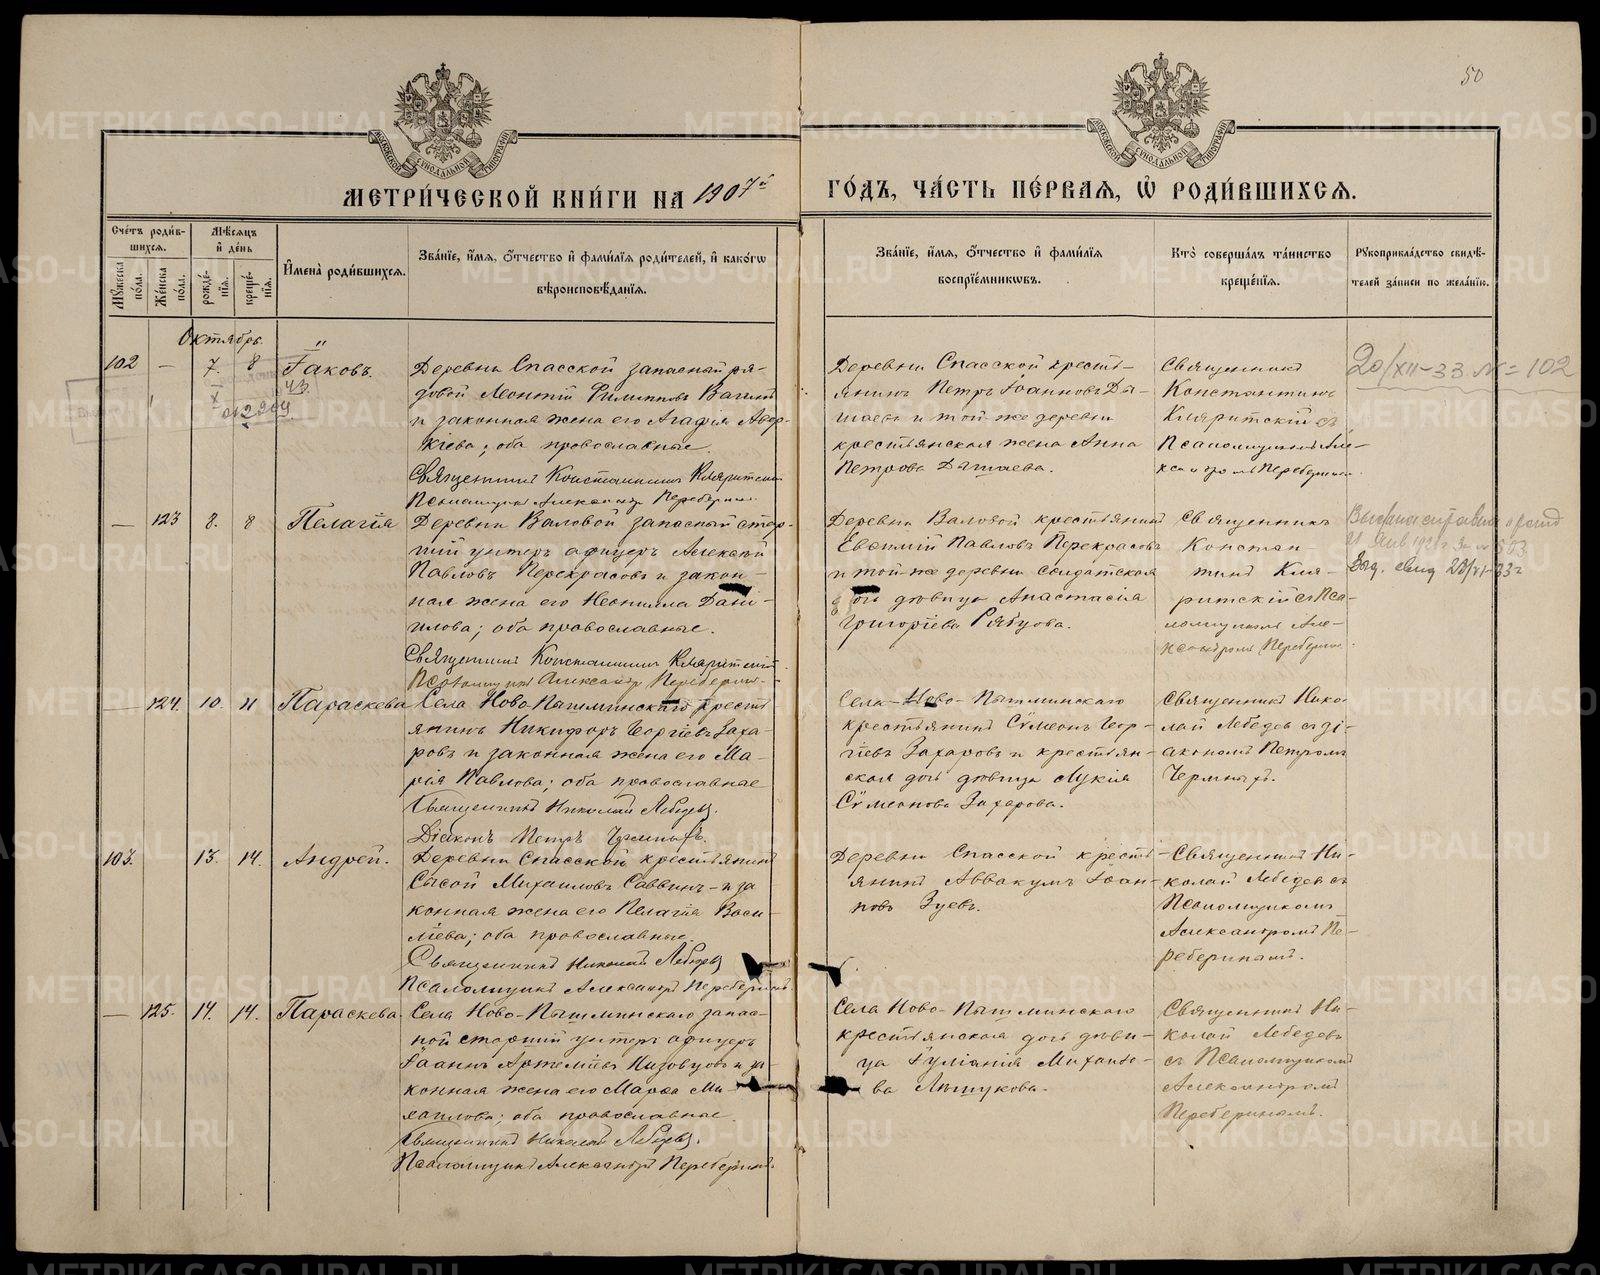 50
МЕТРИ́ЧЕСКОЙ КНИ́ГИ НА 1907й ГО́ДЪ, ЧА́СТЬ ПЕ́РВАѦ, Ѡ РОДИ́ВШИХСѦ.
Счетъ роди́вшихсѧ.
Мꙋжеска по́ла.
Же́нска по́ла.
Мѣ́сѧцъ и де́нь
рожде́нїѧ.
креще́нїѧ.
И҆мена̀ роди́вшихсѧ.
Зва́нїе, и҆́мѧ, ѻ҆́тчество и҆ фами́лїѧ роди́телей, и҆ како́гѡ
вѣроисповѣ́данїѧ.
Зва́нїе, и҆́мѧ, ѻ҆́тчество и҆ фами́лїѧ
воспрїе́мникѡвъ.
Кто̀ соверша́лъ та́инство
креще́нїѧ.
Рꙋкоприкла́дство свидѣ́-
телей за́писи по жела́нїю.
Октябрь.
102 — 7. 8 Іаковъ.
Деревни Спасской запасный ря-
довой Леонтій Филиповъ Вагинъ
и законная жена его Агафія Авер-
кіева; оба православные.
Священникъ Константинъ
Псаломщикъ Александръ Переберинъ
Деревни Спасской кресть-
янинъ Петръ Іоанновъ
и той-же деревни
крестьянская жена Анна
Петрова
Священникъ
Константинъ
съ
Псаломщикомъ Але-
ксандромъ Переберинымъ.
20/XII-33 №=102
— 123 8. 8 Пелагія
Деревни Валовой запасный стар-
шій унтеръ офицеръ Алексѣй
Павловъ Перекрасовъ и закон-
ная жена его Неонилла Дані-
илова; оба православные.
Священникъ Константинъ
Псаломщикъ Александръ Переберинъ
Деревни Валовой крестьянинъ
Евѳимій Павловъ Перекрасовъ
и той-же деревни солдатская
дочь дѣвица Анастасія
Григоріева Рябцова.
Священникъ
Констан-
тинъ
съ Пса-
ломщикомъ Але-
ксандромъ Переберинымъ.
— 124. 10. 11 Параскева
Села Ново-Пышминскаго крестья-
янинъ Никифоръ Георгіевъ Заха-
ровъ и законная жена его Ма-
рія Павлова; оба православные
Священникъ Николай Лебедевъ.
Діаконъ Петръ Черныхъ.
Села Ново-Пышминскаго
крестьянинъ Сѵмеонъ Геор-
гіевъ Захаровъ и крестьян-
ская дочь дѣвица Лукія
Сѵмеонова Захарова.
Священникъ Нико-
лай Лебедевъ съ ді-
акономъ Петромъ
Черныхъ.
103. 13. 14. Андрей.
Деревни Спасской крестьянинъ
Сысой Михаиловъ Саввинъ и за-
конная жена его Пелагія Васи-
ліева; оба православные.
Священникъ Николай Лебедевъ
Псаломщикъ Александръ Переберинъ
Деревни Спасской кресть-
янинъ Аввакумъ Іоан-
новъ Зуевъ.
Священникъ Ни-
колай Лебедевъ съ
Псаломщикомъ
Александромъ Пе-
реберинымъ.
— 125. 14. 14. Параскева.
Села Ново-Пышминскаго запас-
ной старшій унтеръ офицеръ
Іоаннъ Артеміевъ Низовцовъ и за-
конная жена его Марѳа Ми-
хаилова; оба православные
Священникъ Николай Лебедевъ.
Псаломщикъ Александръ Переберинъ
Села Ново-Пышминскаго
крестьянская дочь дѣви-
ца Іуліанія Михаило-
ва Ляшукова.
Священникъ Ни-
колай Лебедевъ
съ Псаломщикомъ
Александромъ
Переберинымъ.